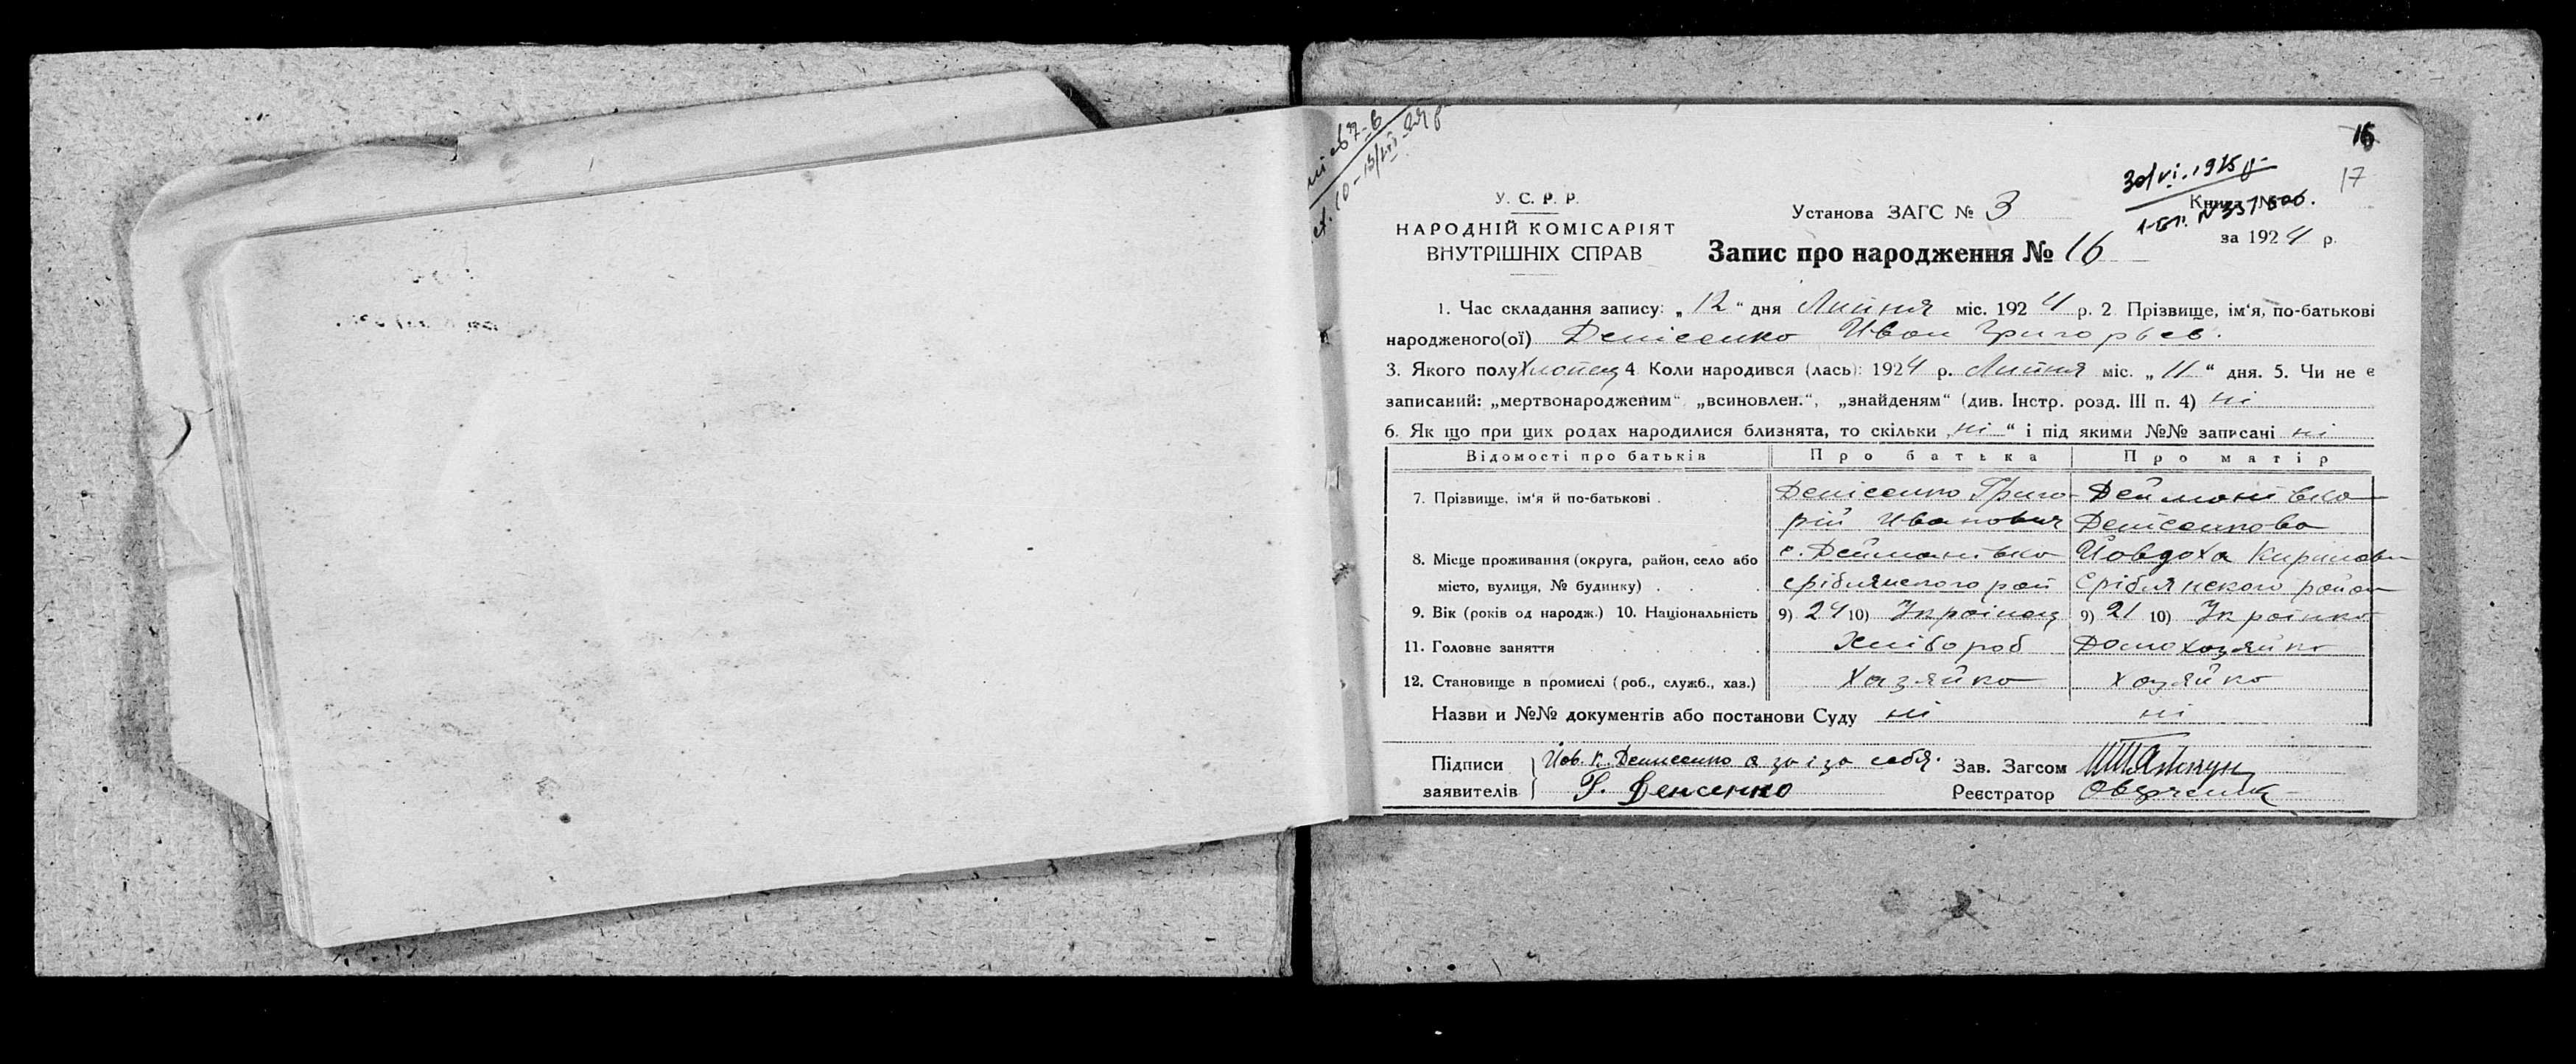 16
17
30/VI.1925 р
У. С. Р. Р.
НАРОДНІЙ КОМІСАРІЯТ
ВНУТРІШНІХ СПРАВ
Установа ЗАГС № 3
Книга №
1-бп. № 351
за 1924 р.
Запис про народження № 16
1. Час складання запису: „12“ дня Липня міс. 1924 р. 2. Прізвище, ім'я, по-батькові
народженого(ої) Денісенко Иван Григорьев.
3. Якого полу Хлопец 4 Коли народився (лась): 1924 р. Липня міс. „11“ дня. 5. Чи не є
записаний: „мертвонародженим“ „всиновлен.“, „знайденям“ (див. Інстр. розд. III п. 4) ні
6. Як що при цих родах народилися близнята, то скільки „ні“ і під якими №№ записані ні
Відомості про батьків Про батька Про матір
7. Прізвище, ім'я й по-батькові . Денісенко Григо- Дейманівка
рій Иванович Денісенкова
8. Місце проживання (округа, район, село або с. Дейманівка Йовдоха Кирилов
місто, вулиця, № будинку) . . . Срібнянского рай Срібнянского район
9. Вік (років од народж.) 10. Національність 9) 24 10) Украінец 9) 21 10) Украінка
11. Головне заняття Хлібороб Домохозяйка
12. Становище в промислі (роб., служб., хаз.) Хазяйко хозяйко
Назви и №№ документів або постанови Суду ні ні
Підписи Йов. К. Денисенко а за і за себя. Зав. Загсом
заявителів Г. Денсенко Реєстратор